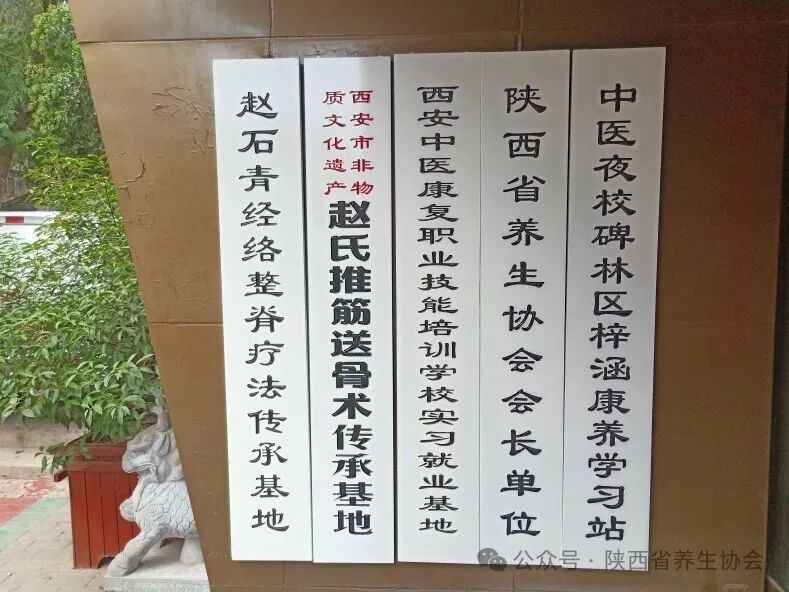 赵石青经络整脊疗法传承基地
西安市非物
质文化遗产
赵氏推筋送骨术传承基地
西安中医康复职业技能培训学校实习就业基地
陕西省养生协会会长单位
中医夜校碑林区梓涵康养学习站
公众号·陕西省养生协会